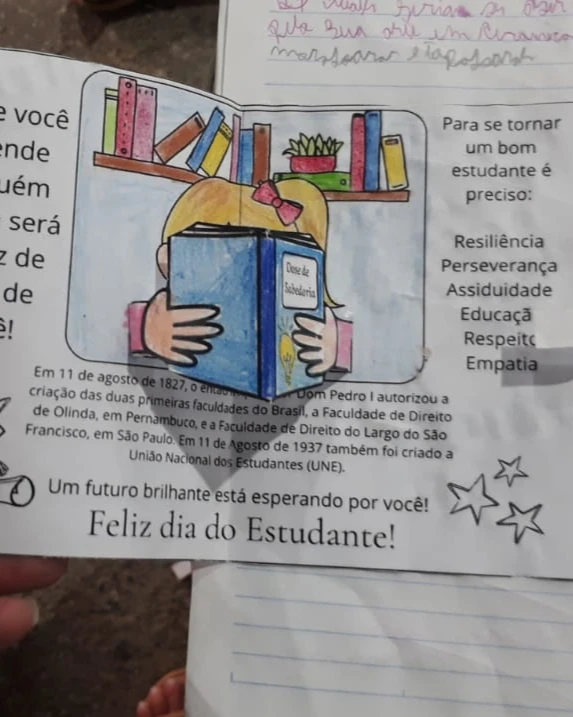 e você
ende
uém
será
z de
de
ê!
Dose de
Sabedoria
Para se tornar
um bom
estudante é
preciso:
Resiliência
Perseverança
Assiduidade
Educaçã
Respeito
Empatia
Em 11 de agosto de 1827, o Dom Pedro I autorizou a
criação das duas primeiras faculdades do Brasil, a Faculdade de Direito
de Olinda, em Pernambuco, e a Faculdade de Direito do Largo do São
Francisco, em São Paulo. Em 11 de Agosto de 1937 também foi criado a
União Nacional dos Estudantes (UNE).
Um futuro brilhante está esperando por você!
Feliz dia do Estudante!